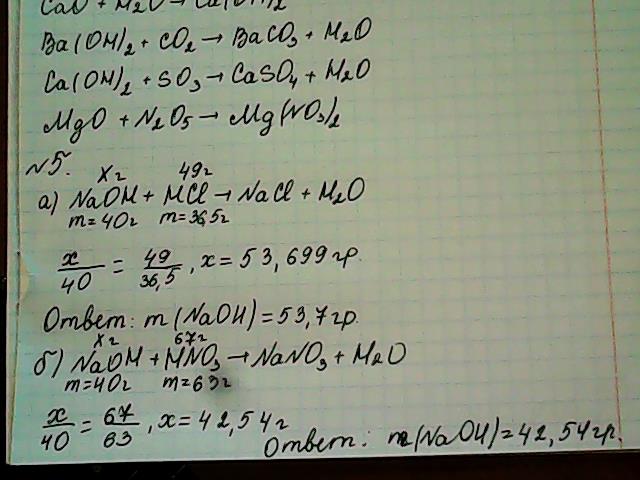 CaO + H₂O → Ca(OH)₂
Ba(OH)₂ + CO₂ → BaCO₃ + H₂O
Ca(OH)₂ + SO₃ → CaSO₄ + H₂O
MgO + N₂O₅ → Mg(NO₃)₂
№5.
xг 49г
а) NaOH + HCl → NaCl + H₂O
m=40г m=36,5г
x/40 = 49/36,5, x = 53,699гр.
Ответ: m(NaOH) = 53,7гр.
xг 67г
б) NaOH + HNO₃ → NaNO₃ + H₂O
m=40г m=63г
x/40 = 67/63, x = 42,54г
Ответ: m(NaOH) = 42,54гр.